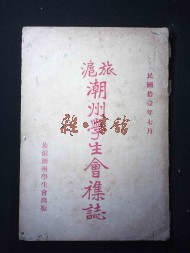 民國拾壹年七月
旅滬
潮州學生會襍誌
旅滬潮州學生會出版